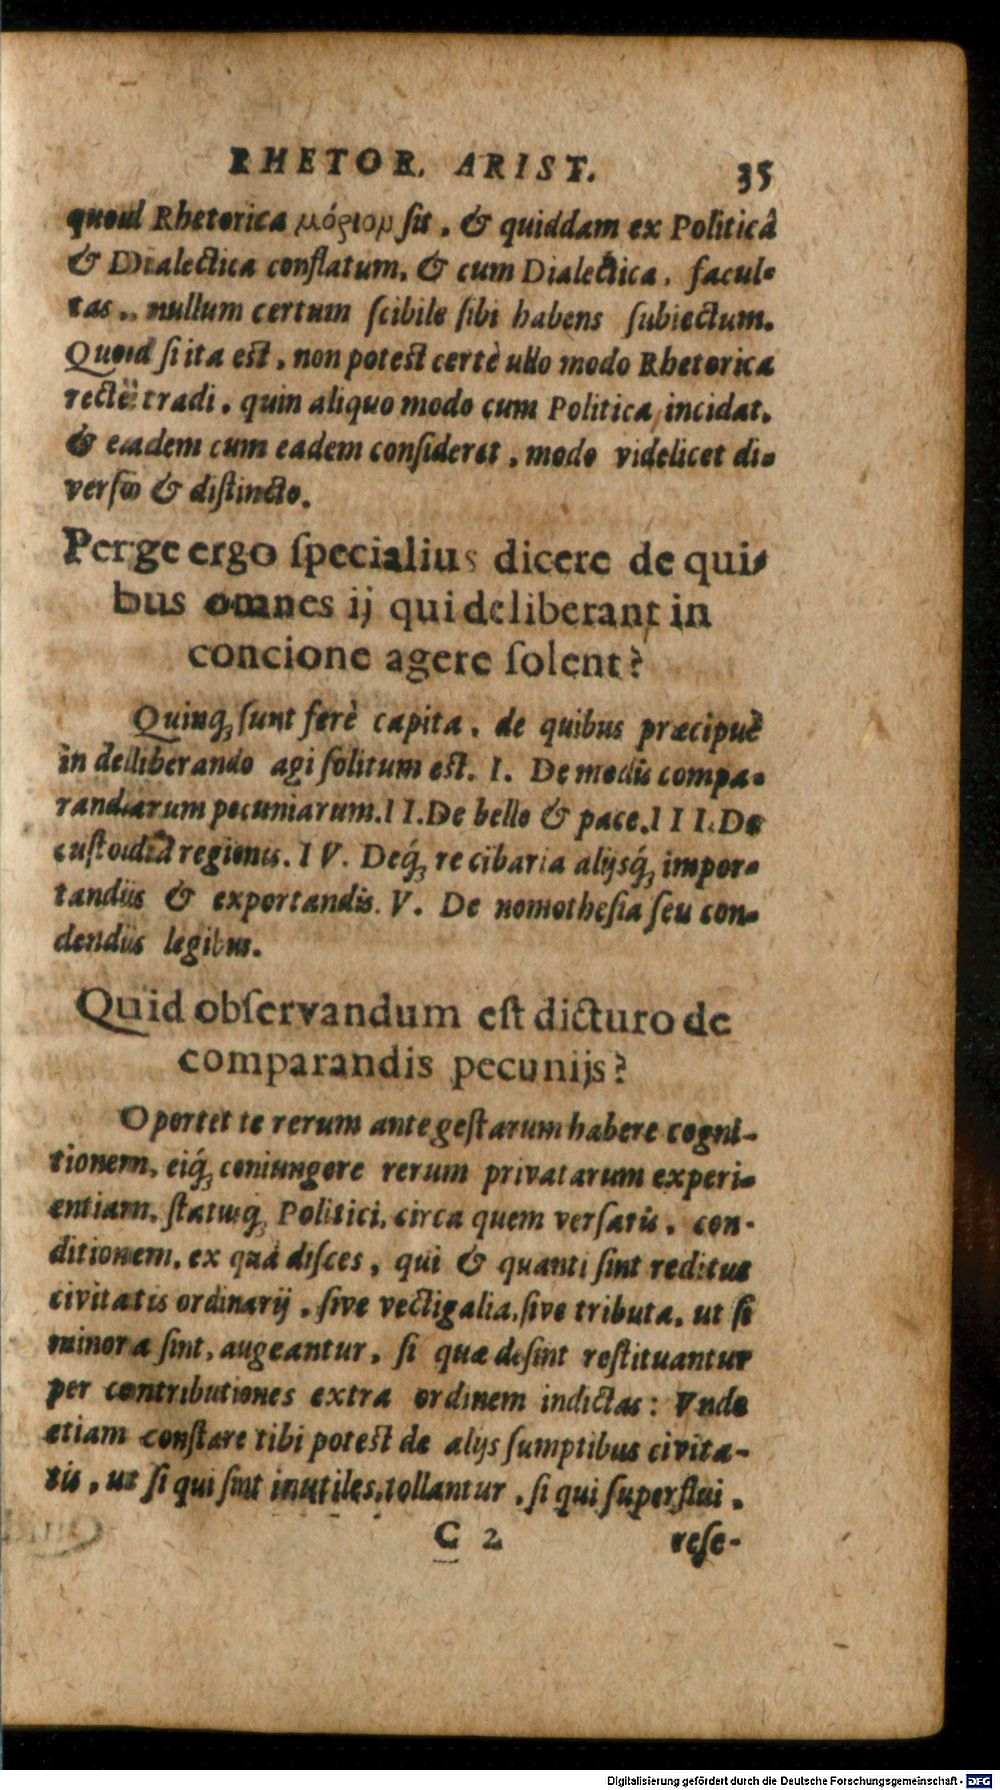 RHETOR. ARIST. 35
quod Rhetorica μόριον ſit, & quiddam ex Politicâ
& Dialectica conflatum, & cum Dialectica, facul-
tas, nullum certum ſcibile ſibi habens ſubiectum.
Quod ſi ita eſt, non poteſt certè ullo modo Rhetorica
rectè tradi, quin aliquo modo cum Politica incidat,
& eadem cum eadem conſideret, modo videlicet di-
verſo & diſtincto.
Perge ergo ſpecialius dicere de qui-
bus omnes ij qui deliberant in
concione agere ſolent?
Quinq; ſunt ferè capita, de quibus præcipuè
in deliberando agi ſolitum eſt. I. De modis compa-
randarum pecuniarum. II. De bello & pace. III. De
cuſtodiâ regionis. IV. Deq́; re cibaria alijsq́; impor-
tandis & exportandis. V. De nomotheſia ſeu con-
dendis legibus.
Quid obſervandum eſt dicturo de
comparandis pecunijs?
Oportet te rerum ante geſtarum habere cogni-
tionem, eiq́; coniungere rerum privatarum experi-
entiam, ſtatusq́; Politici, circa quem verſaris, con-
ditionem, ex quâ diſces, qui & quanti ſint reditus
civitatis ordinarij, ſive vectigalia, ſive tributa, ut ſi
minora ſint, augeantur, ſi quæ deſint reſtituantur
per contributiones extra ordinem indictas: Vnde
etiam conſtare tibi poteſt de alijs ſumptibus civita-
tis, ut ſi qui ſint inutiles, tollantur, ſi qui ſuperflui,
C 2 reſe-
Digitalisierung gefördert durch die Deutsche Forschungsgemeinschaft - DFG